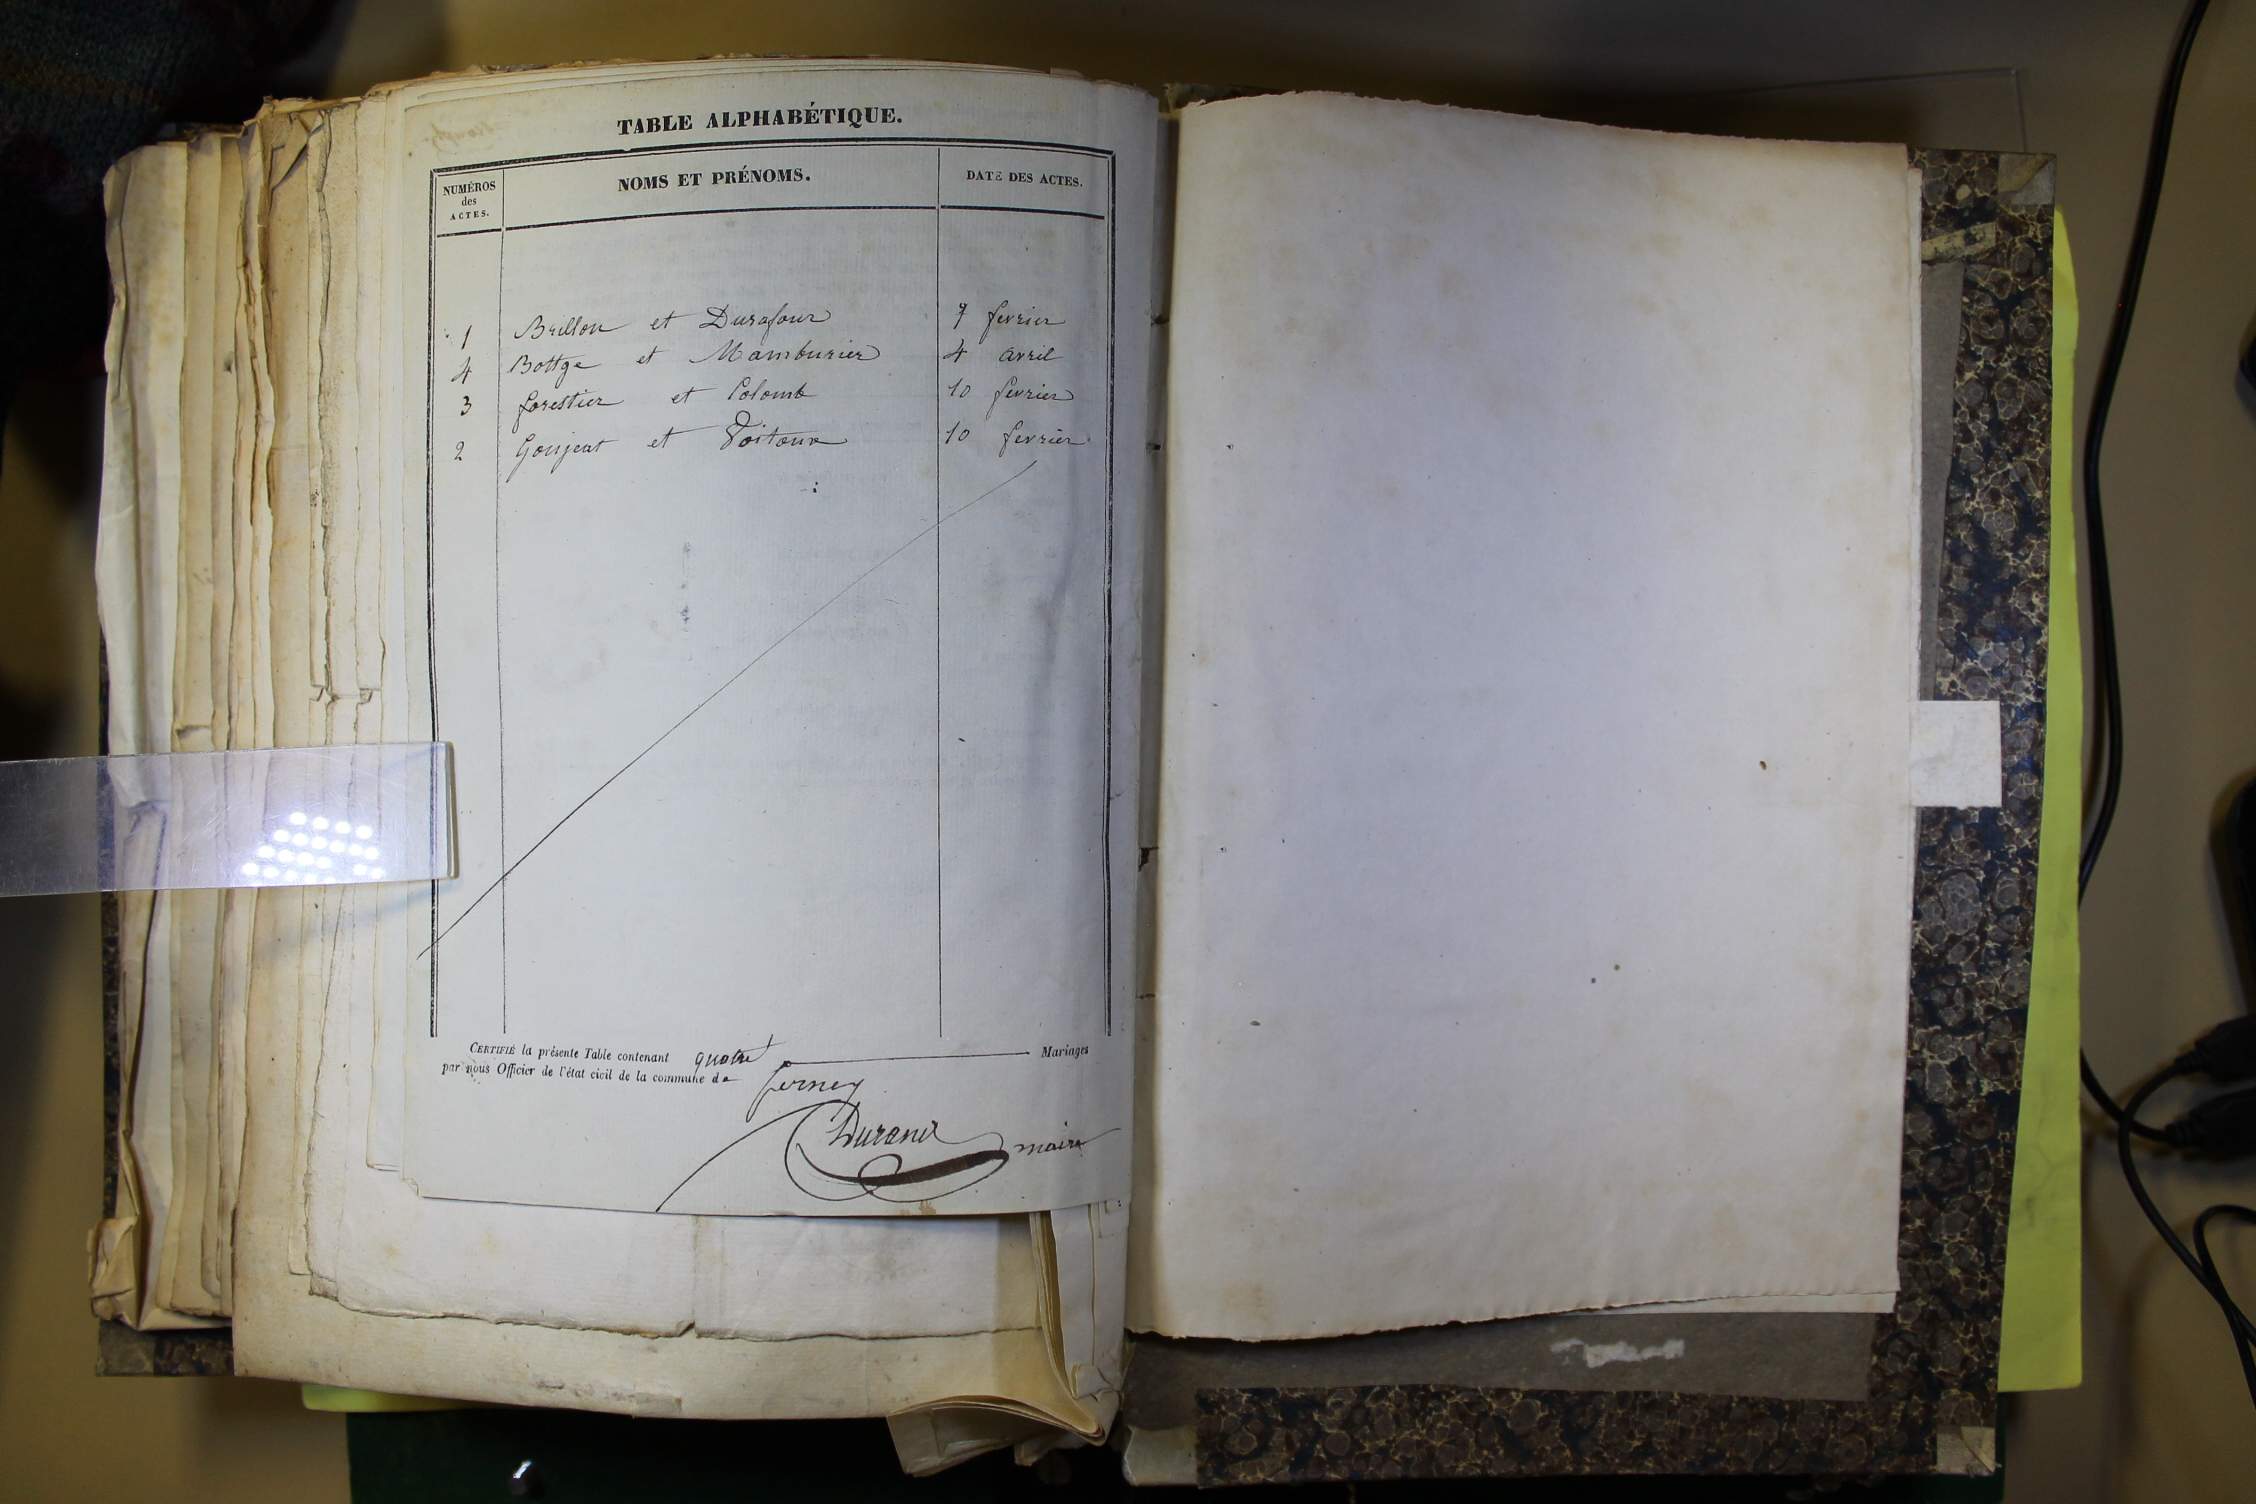 TABLE ALPHABÉTIQUE.
NUMÉROS des ACTES. NOMS ET PRÉNOMS. DATE DES ACTES.
1 Brillon et Durafour 7 fevrier
4 Bottge et Mamburier 4 avril
3 forestier et Colomb 10 fevrier
2 Goujeat et Voitoux 10 fevrier
CERTIFIÉ la présente Table contenant quatre Mariages
par nous Officier de l'état civil de la commune de ferney
Durand maire